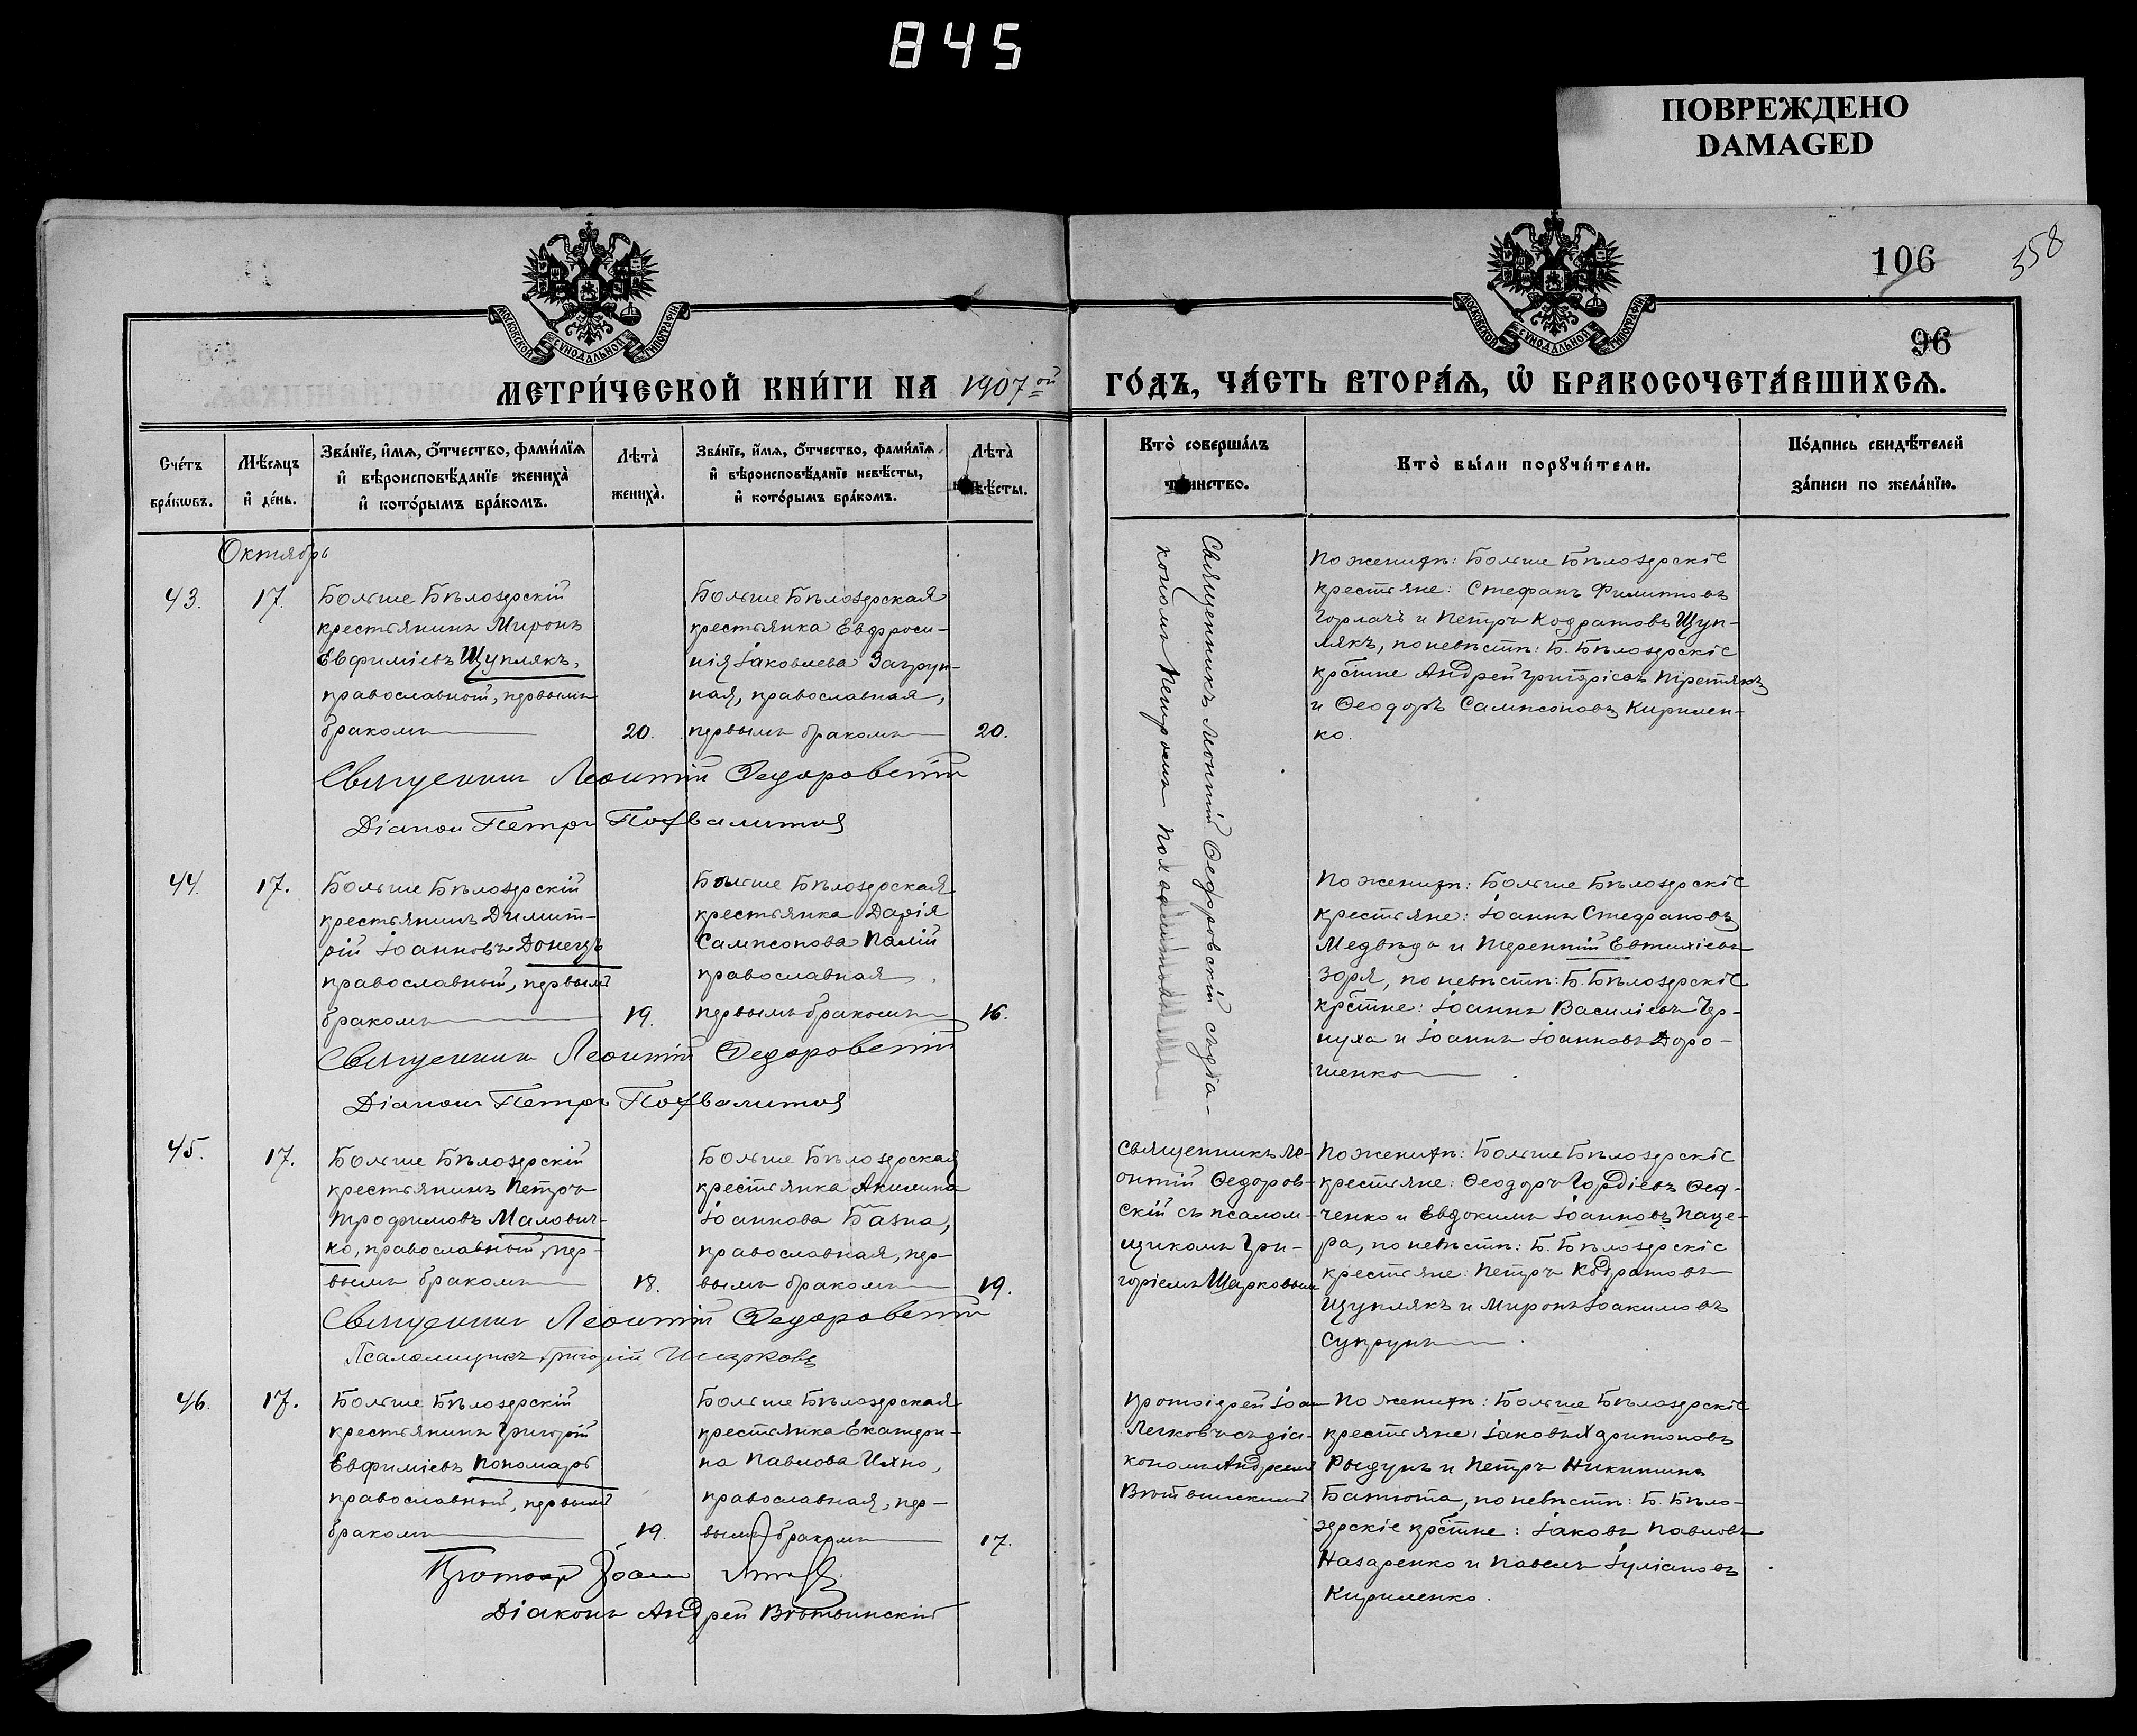 845
ПОВРЕЖДЕНО
DAMAGED
106
358
96
МОСКОВСКОЙ СѴНОДАЛЬНОЙ ТИПОГРАФІИ
МОСКОВСКОЙ СѴНОДАЛЬНОЙ ТИПОГРАФІИ
МЕТРИ́ЧЕСКОЙ КНИ́ГИ НА 1907ой
ГО́ДЪ, ЧА́СТЬ ВТОРА́Ѧ, Ѽ БРАКОСОЧЕТА́ВШИХСѦ.
Сче́тъ бра́кωвъ.
Мѣ́сѧцъ и҆ де́нь.
Зва́нїе, и҆́мѧ, о҆́тчество, фами́лїѧ
и҆ вѣроисповѣ́данїе жениха̀
и҆ кото́рымъ бра́комъ.
Лѣта̀ жениха̀.
Зва́нїе, и҆́мѧ, о҆́тчество, фами́лїѧ
и҆ вѣроисповѣ́данїе невѣ́сты,
и҆ кото́рымъ бра́комъ.
Лѣта̀ невѣ́сты.
Кто̀ соверша́лъ таинство.
Кто̀ бы́ли порꙋчи́тели.
По́дпись свидѣ́телей
за́писи по жела́нїю.
Октябрь
43.
17.
Больше Бѣлозерскій
крестьянинъ Миронъ
Евфиміевъ Щуплякъ,
православный, первымъ
бракомъ
20.
Больше Бѣлозерская
крестьянка Евфроси-
нія Іаковлева
ная, православная,
первымъ бракомъ
20.
Священникъ Леонтій Ѳедоровскій съ діа-
кономъ Петромъ Похвалитымъ
По женихѣ: Больше Бѣлозерскіе
крестьяне: Стефанъ Филиповъ
Горлачъ и Петръ Кодратовъ Щуп-
лякъ, по невѣстѣ: Б. Бѣлозерскіе
крестне Андрей Григоріевъ Третякъ
и Ѳеодоръ Сампсоновъ Кирилен-
ко.
Священникъ Леонтій Ѳедоровскій
Діаконъ Петръ Похвалитый
44.
17.
Больше Бѣлозерскій
крестьянинъ Димит-
рій Іоанновъ Донецъ
православный, первымъ
бракомъ
19.
Больше Бѣлозерская
крестьянка Дарія
Сампсонова Палій
православная
первымъ бракомъ
16.
По женихѣ: Больше Бѣлозерскіе
крестьяне: Іоаннъ Стефановъ
Медвѣдь и Терентій Евтихіевъ
Зоря, по невѣстѣ: Б. Бѣлозерскіе
крестне: Іоаннъ Василіевъ Чер-
нуха и Іоаннъ Іоанновъ Доро-
шенко
Священникъ Леонтій Ѳедоровскій
Діаконъ Петръ Похвалитый
45.
17.
Больше Бѣлозерскій
крестьянинъ Петръ
Трофимовъ Малович-
ко, православный, пер-
вымъ бракомъ
18.
Больше Бѣлозерская
крестьянка Акилина
Іоаннова Базна,
православная, пер-
вымъ бракомъ
19.
Священникъ Ле-
онтій Ѳедоров-
скій съ псалом-
щикомъ Гри-
горіемъ Шарковымъ
По женихѣ: Больше Бѣлозерскіе
крестьяне: Ѳеодоръ Гордіевъ Ѳед-
ченко и Евдокимъ Іоанновъ Паце-
ра, по невѣстѣ: Б. Бѣлозерскіе
крестьяне: Петръ Кодратовъ
Щуплякъ и Миронъ Іоакимовъ
Супрунъ
Священникъ Леонтій Ѳедоровскій
Псаломщикъ Григорій Шарковъ
46.
17.
Больше Бѣлозерскій
крестьянинъ Григорій
Евфиміевъ Пономарь
православный, первымъ
бракомъ
19.
Больше Бѣлозерская
крестьянка Екатери-
на Павлова Ихно,
православная, пер-
вымъ бракомъ
17.
Протоіерей Іоан
съ діа-
кономъ Андреемъ
По женихѣ: Больше Бѣлозерскіе
крестьяне: Іаковъ Харитоновъ
Рыдунъ и Петръ Никитинъ
Батюта, по невѣстѣ: Б. Бѣло-
зерскіе крестне: Іаковъ Павловъ
Назаренко и Павелъ Іуліановъ
Кириленко.
Іоанн
Діаконъ Андрей